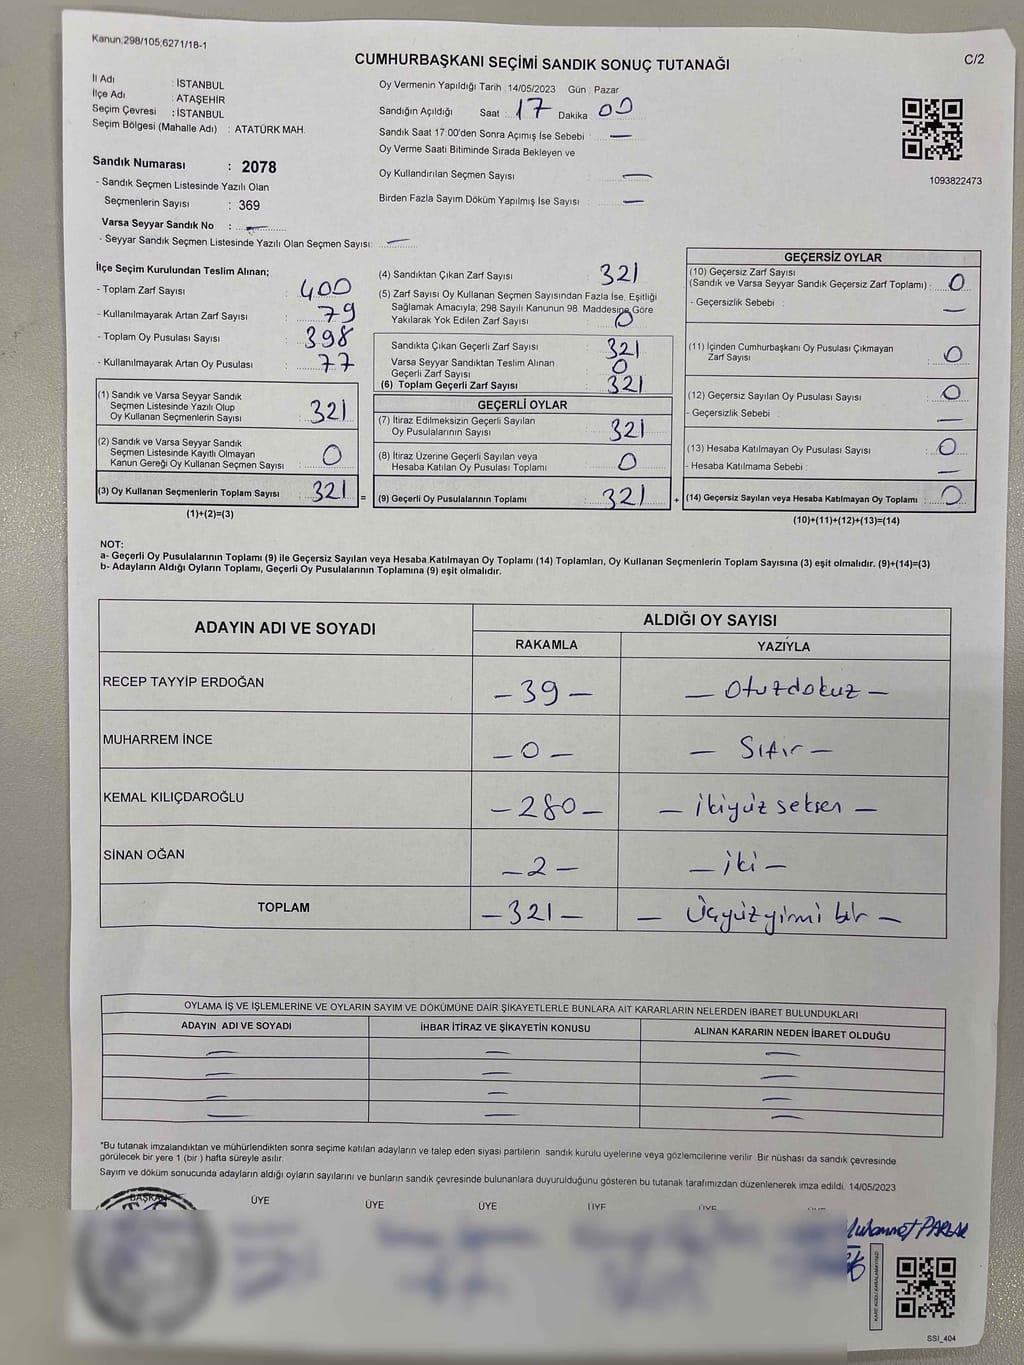 Kanun;298/105,6271/18-1
CUMHURBAŞKANI SEÇİMİ SANDIK SONUÇ TUTANAĞI
C/2
İl Adı : İSTANBUL
İlçe Adı : ATAŞEHİR
Seçim Çevresi : İSTANBUL
Seçim Bölgesi (Mahalle Adı) : ATATÜRK MAH.
Sandık Numarası : 2078
- Sandık Seçmen Listesinde Yazılı Olan
Seçmenlerin Sayısı : 369
Varsa Seyyar Sandık No : —
- Seyyar Sandık Seçmen Listesinde Yazılı Olan Seçmen Sayısı: —
Oy Vermenin Yapıldığı Tarih : 14/05/2023 Gün : Pazar
Sandığın Açıldığı Saat : 17 Dakika : 00
Sandık Saat 17:00'den Sonra Açımış İse Sebebi : —
Oy Verme Saati Bitiminde Sırada Bekleyen ve
Oy Kullandırılan Seçmen Sayısı : —
Birden Fazla Sayım Döküm Yapılmış İse Sayısı : —
1093822473
İlçe Seçim Kurulundan Teslim Alınan;
- Toplam Zarf Sayısı : 400
- Kullanılmayarak Artan Zarf Sayısı : 79
- Toplam Oy Pusulası Sayısı : 398
- Kullanılmayarak Artan Oy Pusulası : 77
(1) Sandık ve Varsa Seyyar Sandık
Seçmen Listesinde Yazılı Olup
Oy Kullanan Seçmenlerin Sayısı : 321
(2) Sandık ve Varsa Seyyar Sandık
Seçmen Listesinde Kayıtlı Olmayan
Kanun Gereği Oy Kullanan Seçmen Sayısı : 0
(3) Oy Kullanan Seçmenlerin Toplam Sayısı : 321 =
(1)+(2)=(3)
(4) Sandıktan Çıkan Zarf Sayısı : 321
(5) Zarf Sayısı Oy Kullanan Seçmen Sayısından Fazla İse, Eşitliği
Sağlamak Amacıyla; 298 Sayılı Kanunun 98. Maddesine Göre
Yakılarak Yok Edilen Zarf Sayısı : 0
Sandıkta Çıkan Geçerli Zarf Sayısı : 321
Varsa Seyyar Sandıktan Teslim Alınan
Geçerli Zarf Sayısı : 0
(6) Toplam Geçerli Zarf Sayısı : 321
GEÇERLİ OYLAR
(7) İtiraz Edilmeksizin Geçerli Sayılan
Oy Pusulalarının Sayısı : 321
(8) İtiraz Üzerine Geçerli Sayılan veya
Hesaba Katılan Oy Pusulası Toplamı : 0
(9) Geçerli Oy Pusulalarının Toplamı : 321 +
GEÇERSİZ OYLAR
(10) Geçersiz Zarf Sayısı
(Sandık ve Varsa Seyyar Sandık Geçersiz Zarf Toplamı) : 0
- Geçersizlik Sebebi : —
(11) İçinden Cumhurbaşkanı Oy Pusulası Çıkmayan
Zarf Sayısı : 0
(12) Geçersiz Sayılan Oy Pusulası Sayısı : 0
- Geçersizlik Sebebi : —
(13) Hesaba Katılmayan Oy Pusulası Sayısı : 0
- Hesaba Katılmama Sebebi : —
(14) Geçersiz Sayılan veya Hesaba Katılmayan Oy Toplamı : 0
(10)+(11)+(12)+(13)=(14)
NOT:
a- Geçerli Oy Pusulalarının Toplamı (9) ile Geçersiz Sayılan veya Hesaba Katılmayan Oy Toplamı (14) Toplamları, Oy Kullanan Seçmenlerin Toplam Sayısına (3) eşit olmalıdır. (9)+(14)=(3)
b- Adayların Aldığı Oyların Toplamı, Geçerli Oy Pusulalarının Toplamına (9) eşit olmalıdır.
ADAYIN ADI VE SOYADI
ALDIĞI OY SAYISI
RAKAMLA YAZIYLA
RECEP TAYYİP ERDOĞAN – 39 – – Otuzdokuz –
MUHARREM İNCE – 0 – – Sıfır –
KEMAL KILIÇDAROĞLU – 280 – – İkiyüz seksen –
SİNAN OĞAN – 2 – – İki –
TOPLAM – 321 – – Üçyüzyirmi bir –
OYLAMA İŞ VE İŞLEMLERİNE VE OYLARIN SAYIM VE DÖKÜMÜNE DAİR ŞİKAYETLERLE BUNLARA AİT KARARLARIN NELERDEN İBARET BULUNDUKLARI
ADAYIN ADI VE SOYADI İHBAR İTİRAZ VE ŞİKAYETİN KONUSU ALINAN KARARIN NEDEN İBARET OLDUĞU
— — —
— — —
— — —
— — —
*Bu tutanak imzalandıktan ve mühürlendikten sonra seçime katılan adayların ve talep eden siyasi partilerin sandık kurulu üyelerine veya gözlemcilerine verilir. Bir nüshası da sandık çevresinde
görülecek bir yere 1 (bir ) hafta süreyle asılır.
Sayım ve döküm sonucunda adayların aldığı oyların sayılarını ve bunların sandık çevresinde bulunanlara duyurulduğunu gösteren bu tutanak tarafımızdan düzenlenerek imza edildi. 14/05/2023
BAŞKAN ÜYE ÜYE ÜYE ÜYE ÜYE
Muhammet PARLAK
SSİ_404